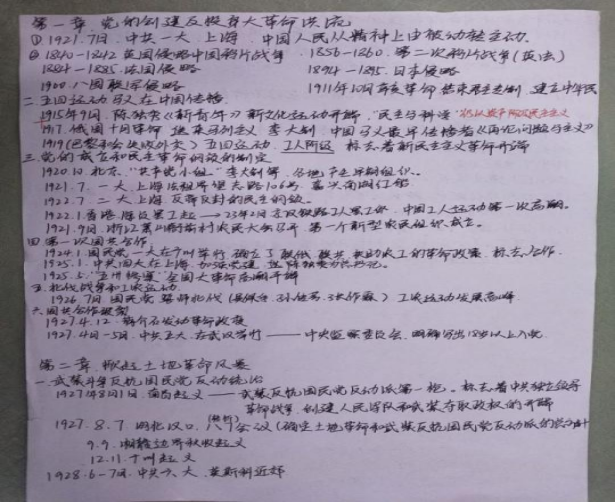 第一章 党的创建及投身大革命洪流
① 1921.7月.中共一大.上海.中国人民从精神上由被动转主动.
② 1840-1842 英国侵略中国鸦片战争 . 1856-1860. 第二次鸦片战争(英法)
1884-1885.法国侵略 1894-1895.日本侵略
1900.八国联军侵略 1911年10月辛亥革命 结束君主专制,建立中华民
二.五四运动 马义在中国传播.
1915年9月.陈独秀《新青年》新文化运动开端."民主与科学"
1917.俄国十月革命 送来马列主义 李大钊.中国马义最早传播者《再论问题与主义》
1919(巴黎和会决败外交)五四运动.工人阶级 标志着新民主主义革命开端
三.党的成立和民主革命纲领的制定
1920.10.北京."共产党小组"李大钊等.
1921.7.一大.上海法租界望志路106号.嘉兴南湖红船
1922.7 二大.上海 反帝反封的民主纲领.
1922.1香港海员罢工起 → 23年2月京汉铁路工人罢工终.中国工人运动第一次高潮.
1921.9月.浙江萧山衙前村农民大会召开.第一个新型农民组织成立.
四.第一次国共合作.
1924.1.国民党一大在广州举行 确立了联俄联共扶助农工的革命政策.标志合作.
1925.1.中共四大在上海.加强党建
1925.5."五卅惨案"全国大革命高潮开端
五.北伐战争和工农运动.
1926.7月.国民党誓师北伐(吴佩孚.孙传芳.张作霖)工农运动发展高峰.
六.国共合作破裂
1927.4.12.蒋介石发动革命政变
1927.4月-5月.中共五大.在武汉举行 —— 中央监察委员会.明确写出18岁以上入党.
第二章 掀起土地革命风暴
一.武装斗争反抗国民党反动统治
1927年8月1日.南昌起义 —— 武装反抗国民党反动派第一枪.标志着中共独立领导
革命战争.创建人民军队和武装夺取政权的开端
1927.8.7.湖北汉口.八七会议(确定土地革命和武装反抗国民党反动派的总方针
9.9.湘赣边界秋收起义
12.11.广州起义
1928.6-7月.中共六大.莫斯科近郊